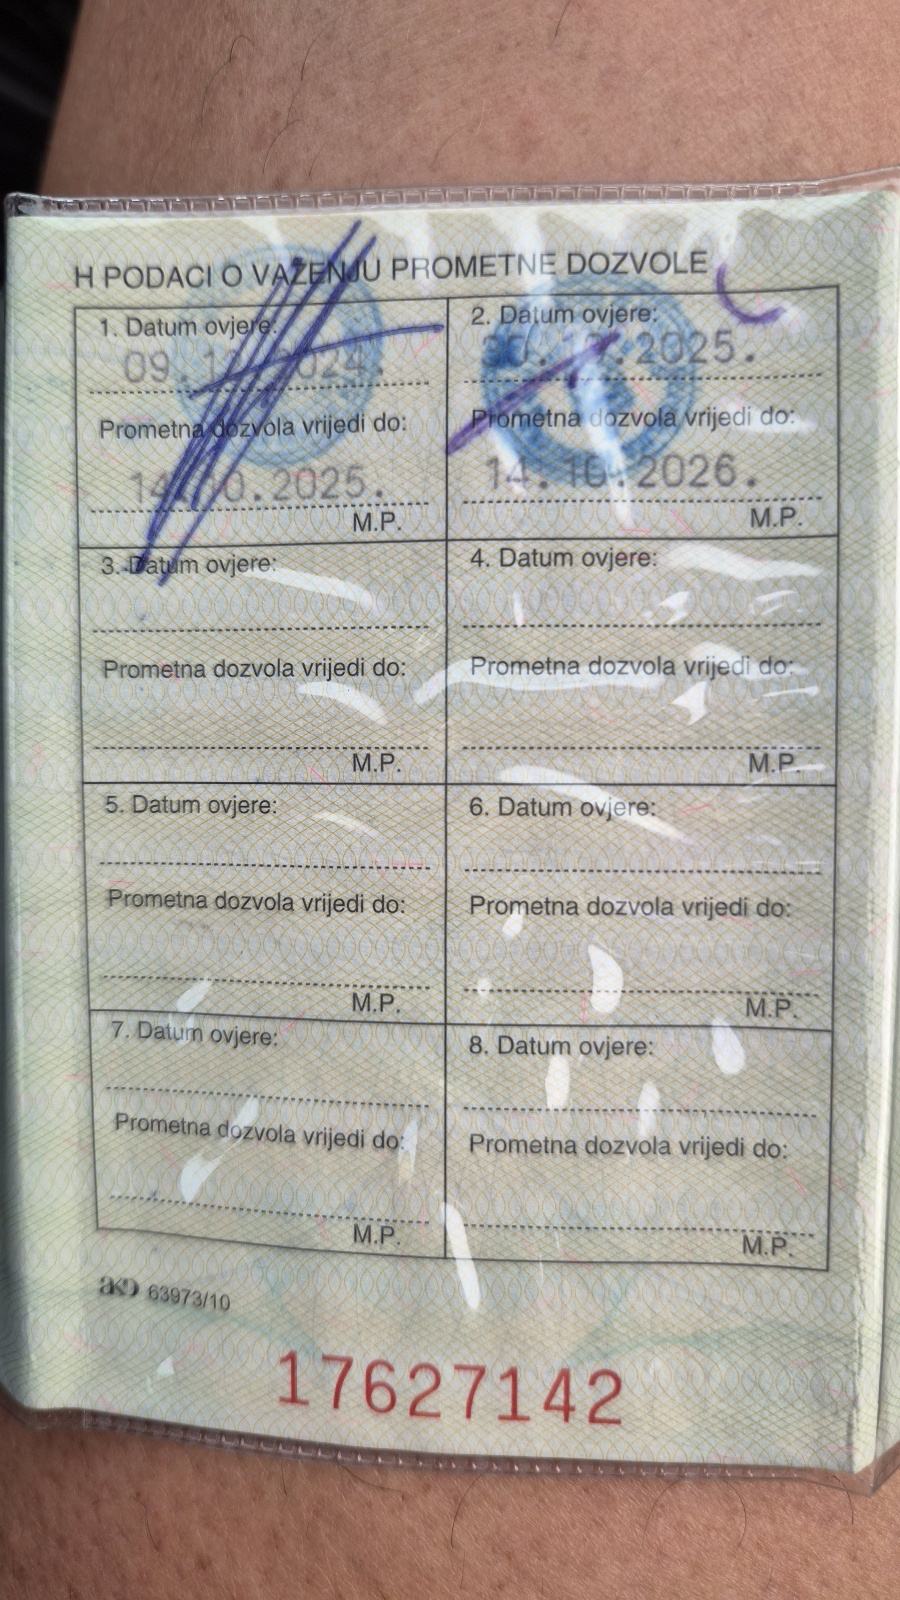 H PODACI O VAŽENJU PROMETNE DOZVOLE
1. Datum ovjere:
09.10.2024.
Prometna dozvola vrijedi do:
14.10.2025.
M.P.
2. Datum ovjere:
.2025.
Prometna dozvola vrijedi do:
14.10.2026.
M.P.
3. Datum ovjere:
Prometna dozvola vrijedi do:
M.P.
4. Datum ovjere:
Prometna dozvola vrijedi do:
M.P.
5. Datum ovjere:
Prometna dozvola vrijedi do:
M.P.
6. Datum ovjere:
Prometna dozvola vrijedi do:
M.P.
7. Datum ovjere:
Prometna dozvola vrijedi do:
M.P.
8. Datum ovjere:
Prometna dozvola vrijedi do:
M.P.
akd 63973/10
17627142